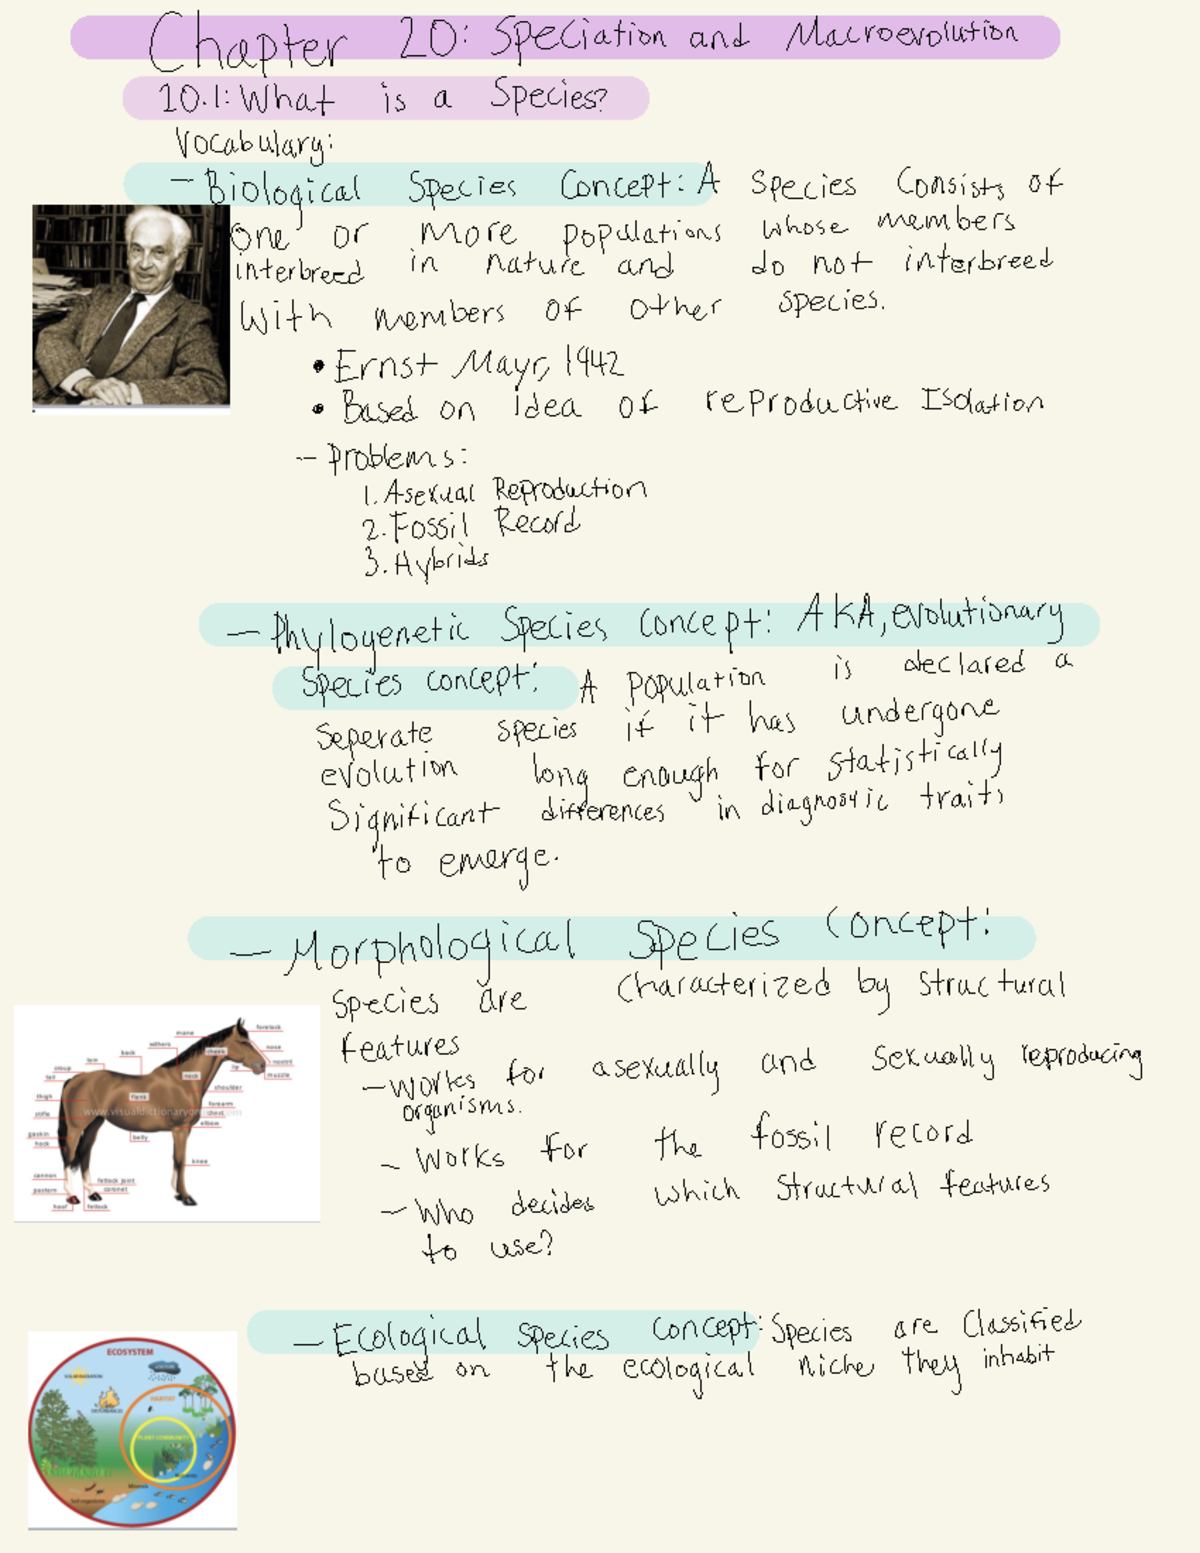 Chapter 20: Speciation and Macroevolution
20.1: What is a Species?
Vocabulary:
- Biological Species Concept: A Species Consists of
one or more populations whose members
interbreed in nature and do not interbreed
With members of other species.
• Ernst Mayr, 1942
• Based on idea of reproductive Isolation
- Problems:
1. Asexual Reproduction
2. Fossil Record
3. Hybrids
- Phylogenetic Species Concept: AKA, evolutionary
Species concept: A Population is declared a
Seperate species if it has undergone
evolution long enough for statistically
Significant differences in diagnostic traits
to emerge.
- Morphological Species Concept:
Species are Characterized by Structural
features
- Works for asexually and Sexually reproducing
organisms.
- Works for the fossil record
- Who decides which Structural features
to use?
forelock
mane
nose
withers
cheek
back
nostril
loin
lip
muzzle
croup
tail
neck
shoulder
thigh
flank
forearm
www.visualdictionaryonline.com
stifle
chest
elbow
gaskin
belly
hock
knee
cannon
fetlock joint
pastern
coronet
hoof
fetlock
- Ecological Species Concept: Species are Classified
based on the ecological niche they inhabit
ECOSYSTEM
HABITAT
PLANT COMMUNITY
Minerals
Soil organisms